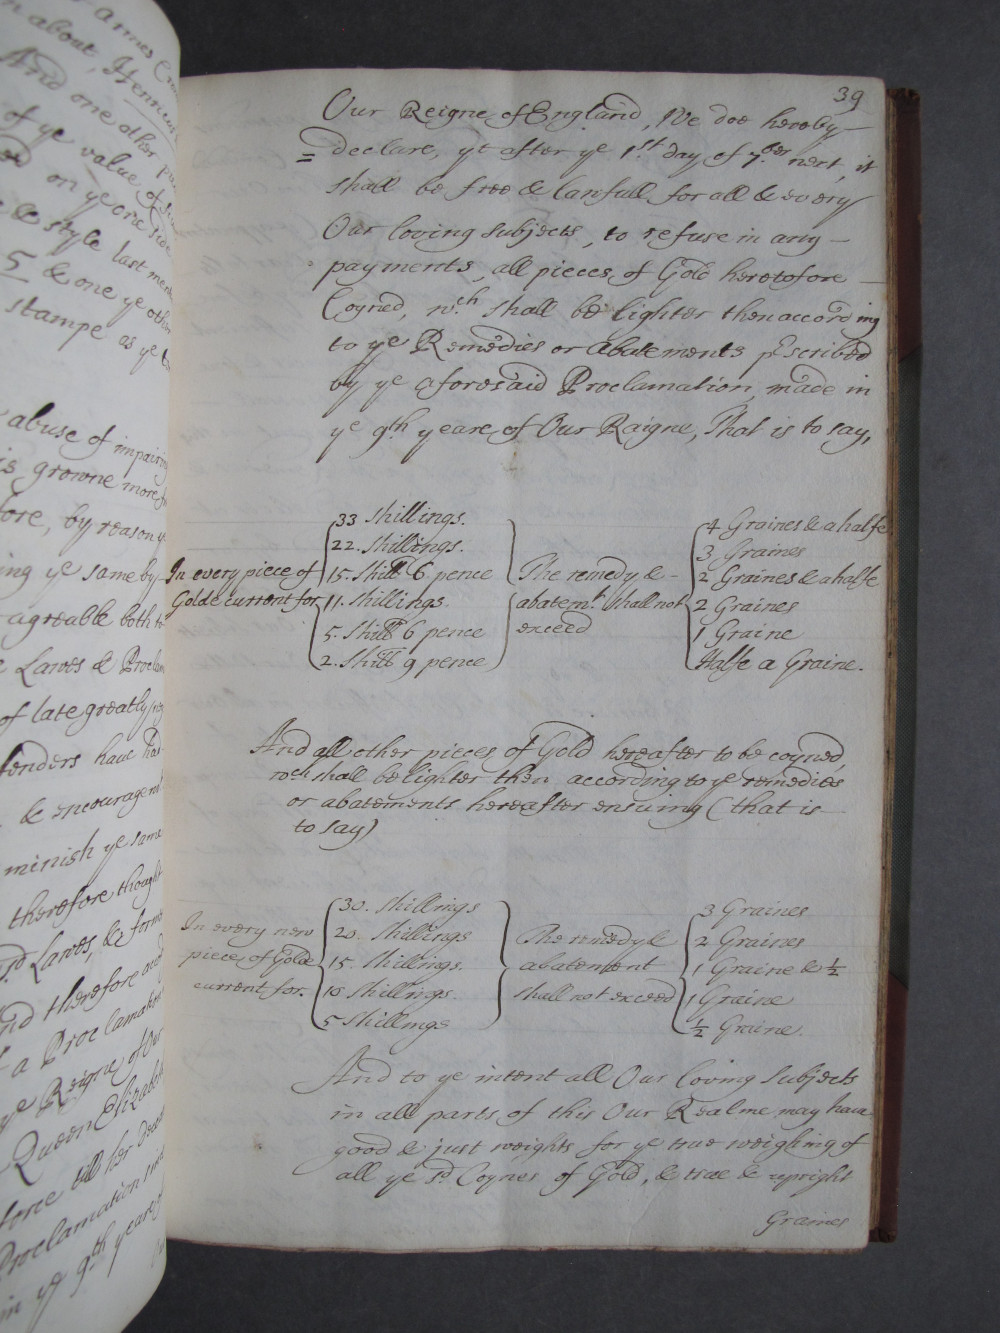 r Armes Crow
n about, Henricus
And one other pie
of ye value of five
on ye one side
& style last ment
5. & one ye other
stampe as ye
abuse of impairing
is growne more
fore, by reason
ing ye same by
agreable both to
Lawes & Proclam
of late greatly
fenders have had
& encouragemt
minish ye same
therefore thought
sd. Lawes, & forme
nd therefore
a Proclamation
ye Reigne of Our
Queen Elizabeth
force till her decea
Proclamation
in ye 9th yeare of
39
Our Reigne of England, We doe hereby
= declare, yt after ye 1st. day of 7.ber next, it
shall be free & lawfull for all & every
Our loving Subjects, to refuse in any
payments, all pieces, of Gold heretofore
Coyned, wch. shall be lighter then according
to ye Remedies or Abatements pscribed
by ye aforesaid Proclamation, made in
ye 9th. yeare of Our Raigne, That is to say,
In every piece of
Golde current for
33 Shillings.
22. Shillings.
15. Shill. 6 pence
11. Shillings.
5. Shill. 6 pence
2. Shill. 9 pence
The remedy &
abatemt. shall not
exceed
4 Graines & a halfe
3 Graines
2 Graines & a halfe
2 Graines
1 Graine
Halfe a Graine.
And all other pieces of Gold hereafter to be coyned,
wch shall be lighter then according to ye remedies
or abatements hereafter ensuing (that is
to say)
In every new
piece of Golde
current for.
30. Shillings
20. Shillings
15. Shillings.
10 Shillings.
5 Shillings
The remedy &
abatement
shall not exceed
3 Graines
2 Graines
1 Graine & ½
1 Graine
½ Graine.
And to ye intent all Our loving Subjects
in all parts, of this Our Realme may have
good & just weights for ye true weighing of
all ye sd. Coynes of Gold, & true & upright
Graines